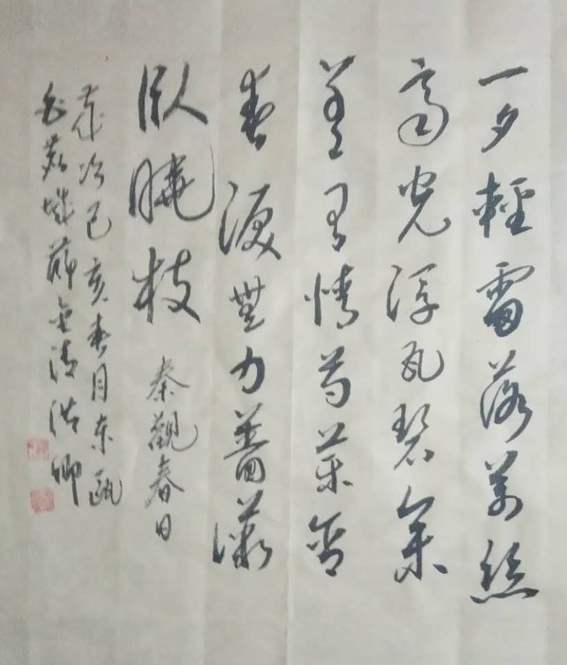 一夕輕雷落萬絲
霽光浮瓦碧參
差有情芍藥含
春淚無力薔薇
臥曉枝 秦觀春日
歲次己亥春月東甌
白鹿城薛金清